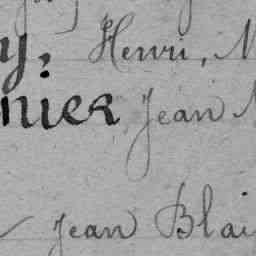 y, Henri, M
nier Jean
Jean Blai